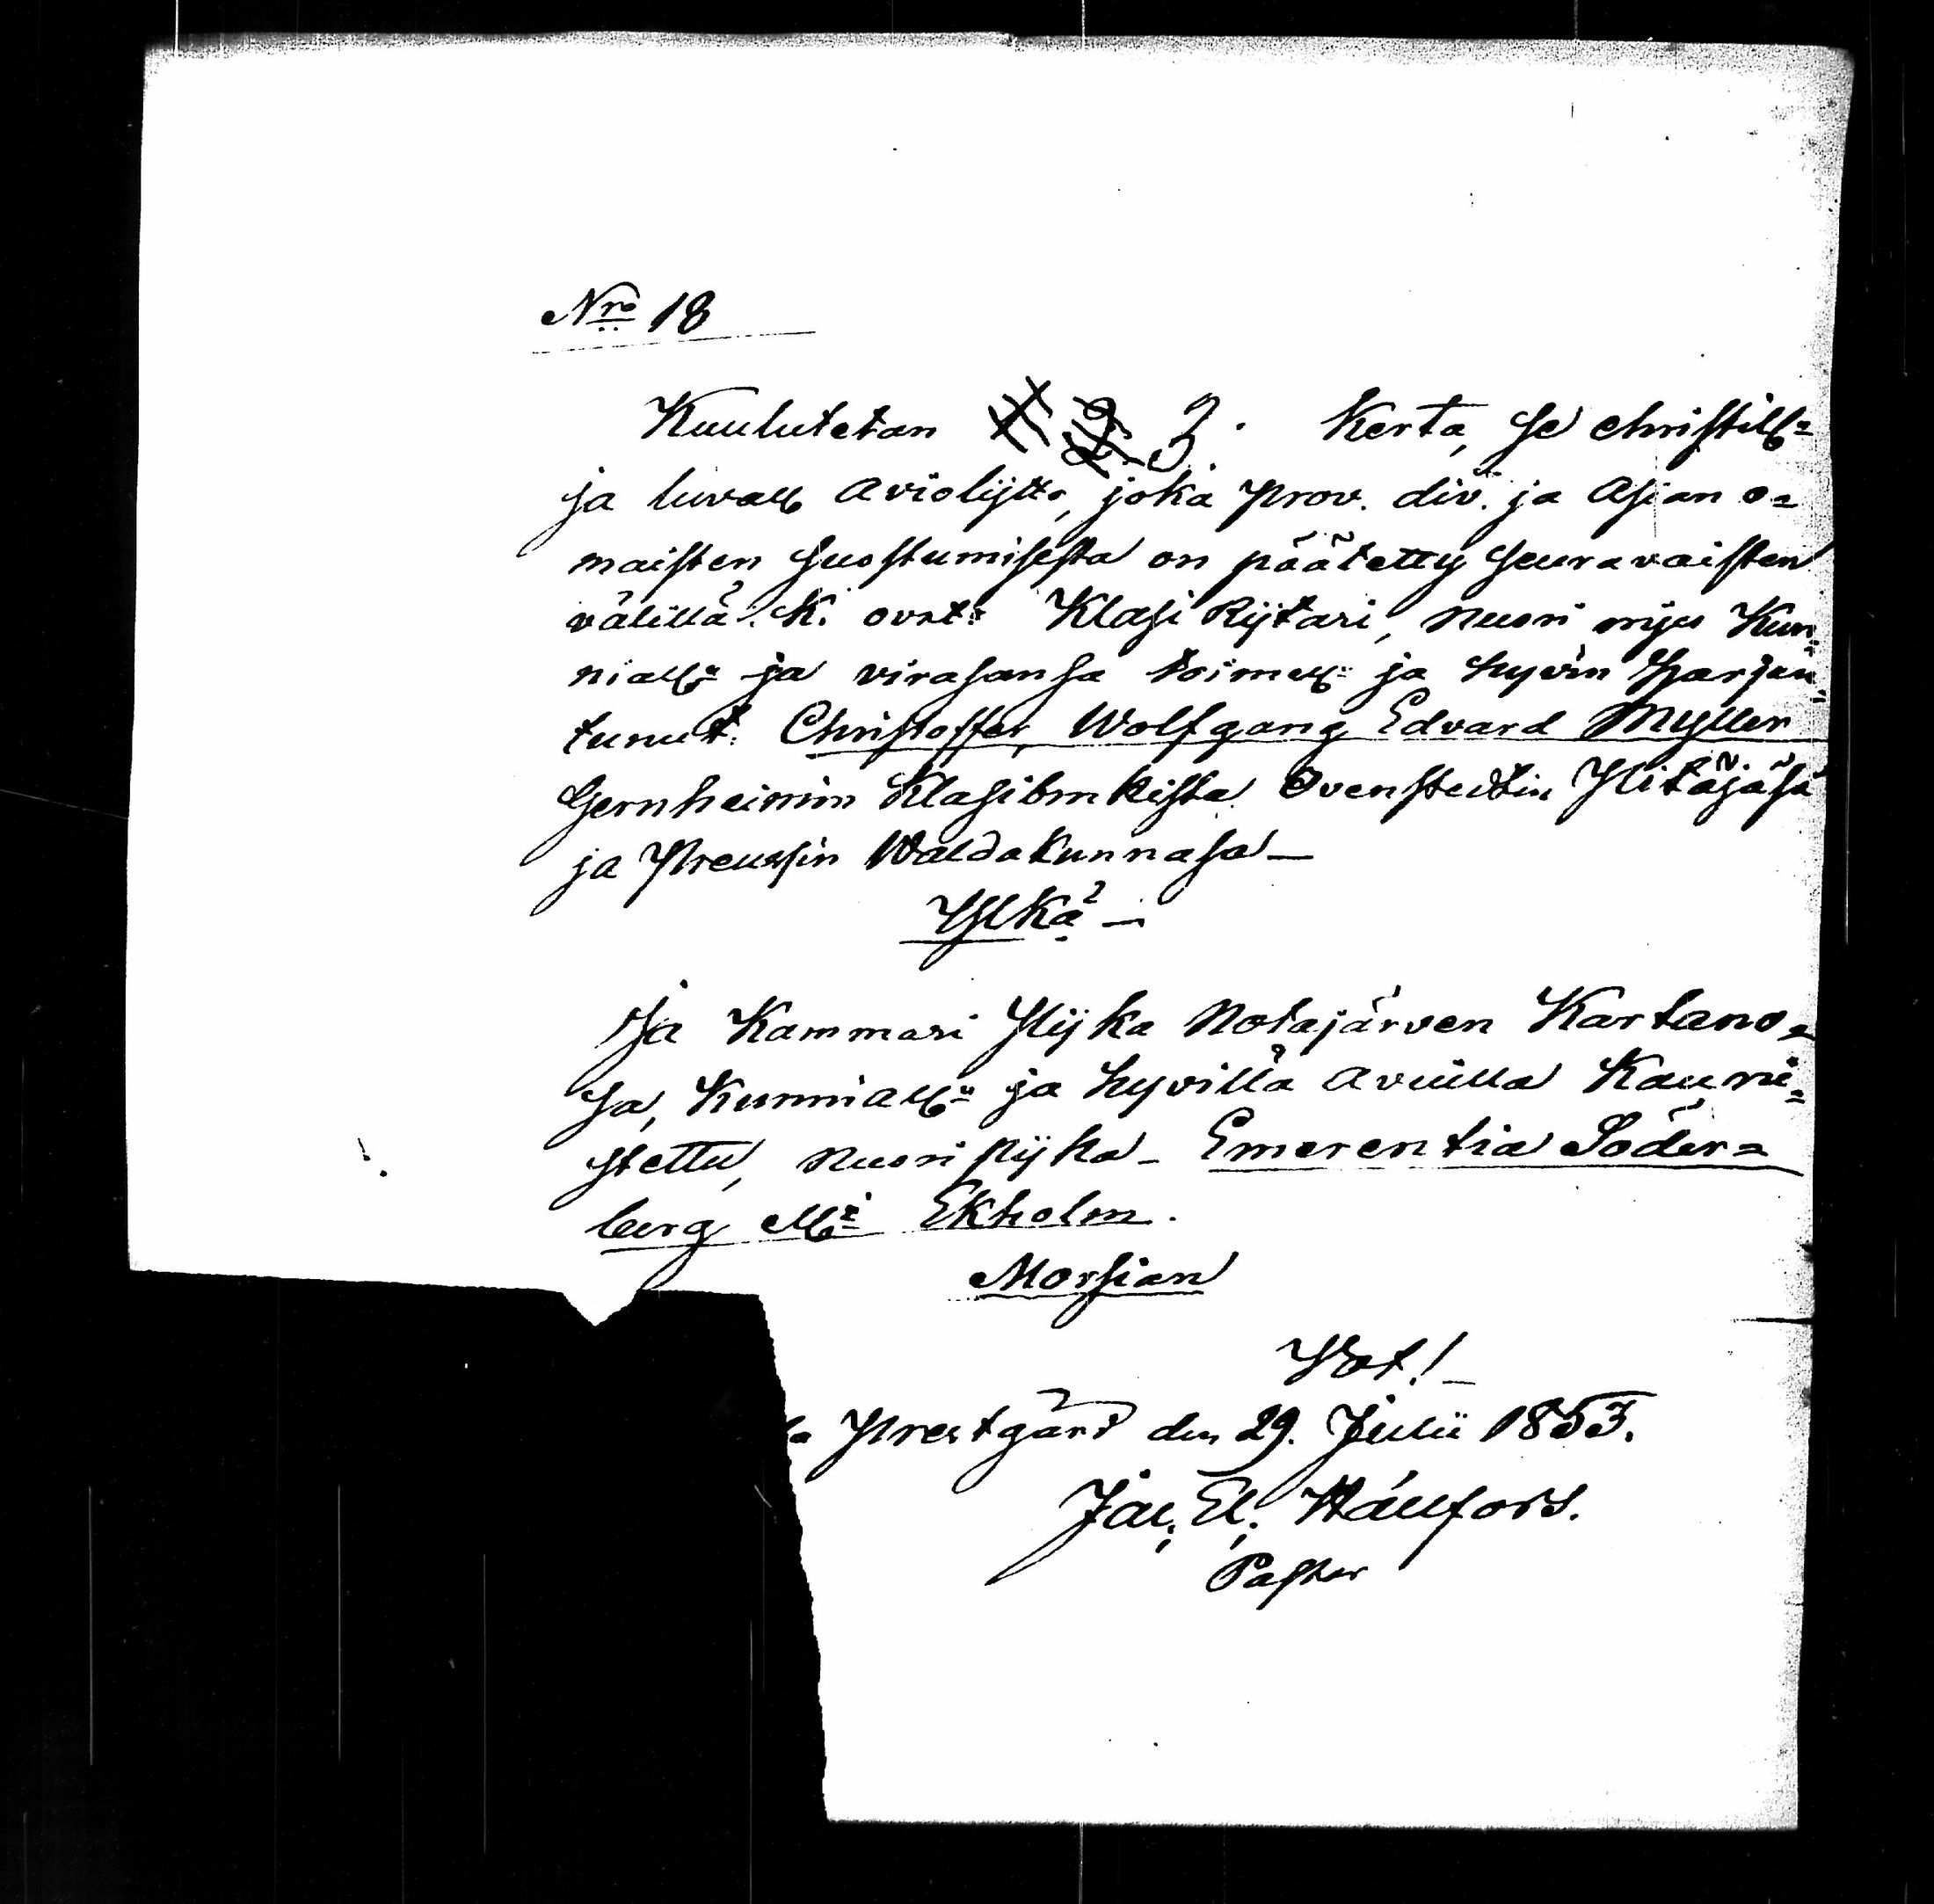 Nro 18
Kuulutetan 1 2 3. Kerta, se christill:
ja luvall Aviolijtto, joka prov. div. ja Asian o=
maisten suostumisesta on päätetty seuravaisten
välillä. K. ovat: Klasi Rijtari, Nuori mijes Kun=
niall: ja virasansa toimell: ja hyvin Harjan=
tunut: Christoffer, Wolfgang Edvard Myller
Gernheimin Klasibrukista Ovenstedtin Pitäjäsä
ja Preussin Waldakunnasa—
Ylkä—
Ja Kammari Pijka Notsjärven Kartano=
sa, Kunniall: ja hyvillä avuilla Kauni=
stettu, nuori pijka— Emerentia Söder=
berg ell: Ekholm.
Morsian
Prestgård den 29. Julii 1853.
Jac. El. Hällfors.
Pastor